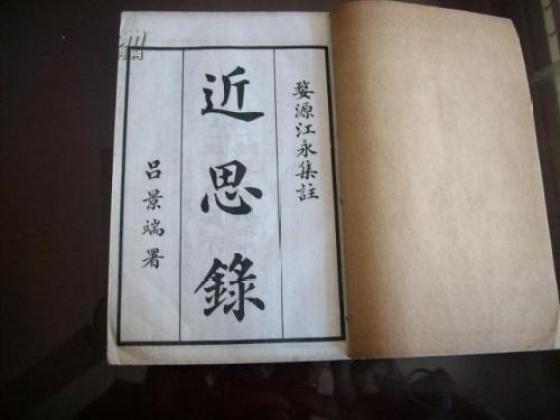 婺源江永集註
近思錄
呂景端署